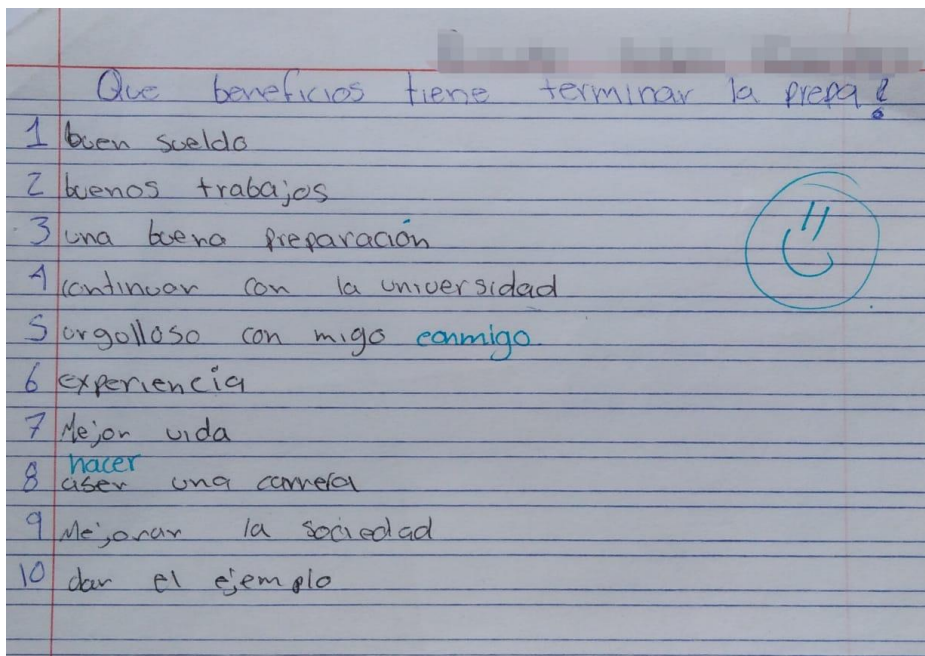 Que beneficios tiene terminar la prepa?
1 buen sueldo
2 buenos trabajos
3 una buena preparación
4 continuar con la universidad
5 orgolloso con migo conmigo.
6 experiencia
7 Mejor vida
hacer
8 aser una carrera
9 Mejorar la sociedad
10 dar el ejemplo